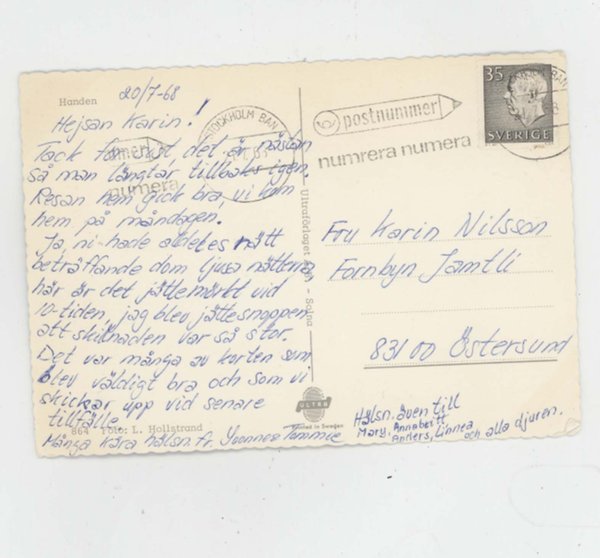 Handen
20/7-68
Hejsan Karin!
Tack för erat, det är nästan
så man längtar tillbaks igen.
Resan hem gick bra, vi kom
hem på måndagen.
Ja ni hade alldeles rätt
beträffande dom ljusa nätterna
här är det jättemörkt vid
10-tiden, jag blev jättesnopen
att skillnaden var så stor.
Det var många av korten som
blev väldigt bra och som vi
skickar upp vid senare
tillfälle.
864 Foto: L. Hollstrand
Många kära hälsn. fr. Yvonne Tommie
STOCKHOLM BAN
numrera
Ultraförlaget - Solna
ULTRA
Printed in Sweden
postnummer
numrera numera
35
SVERIGE
Fru Karin Nilsson
Fornbyn Jamtli
83100 Östersund
Hälsn. även till
Mary, Annabritt
Anders, Linnea
och alla djuren.